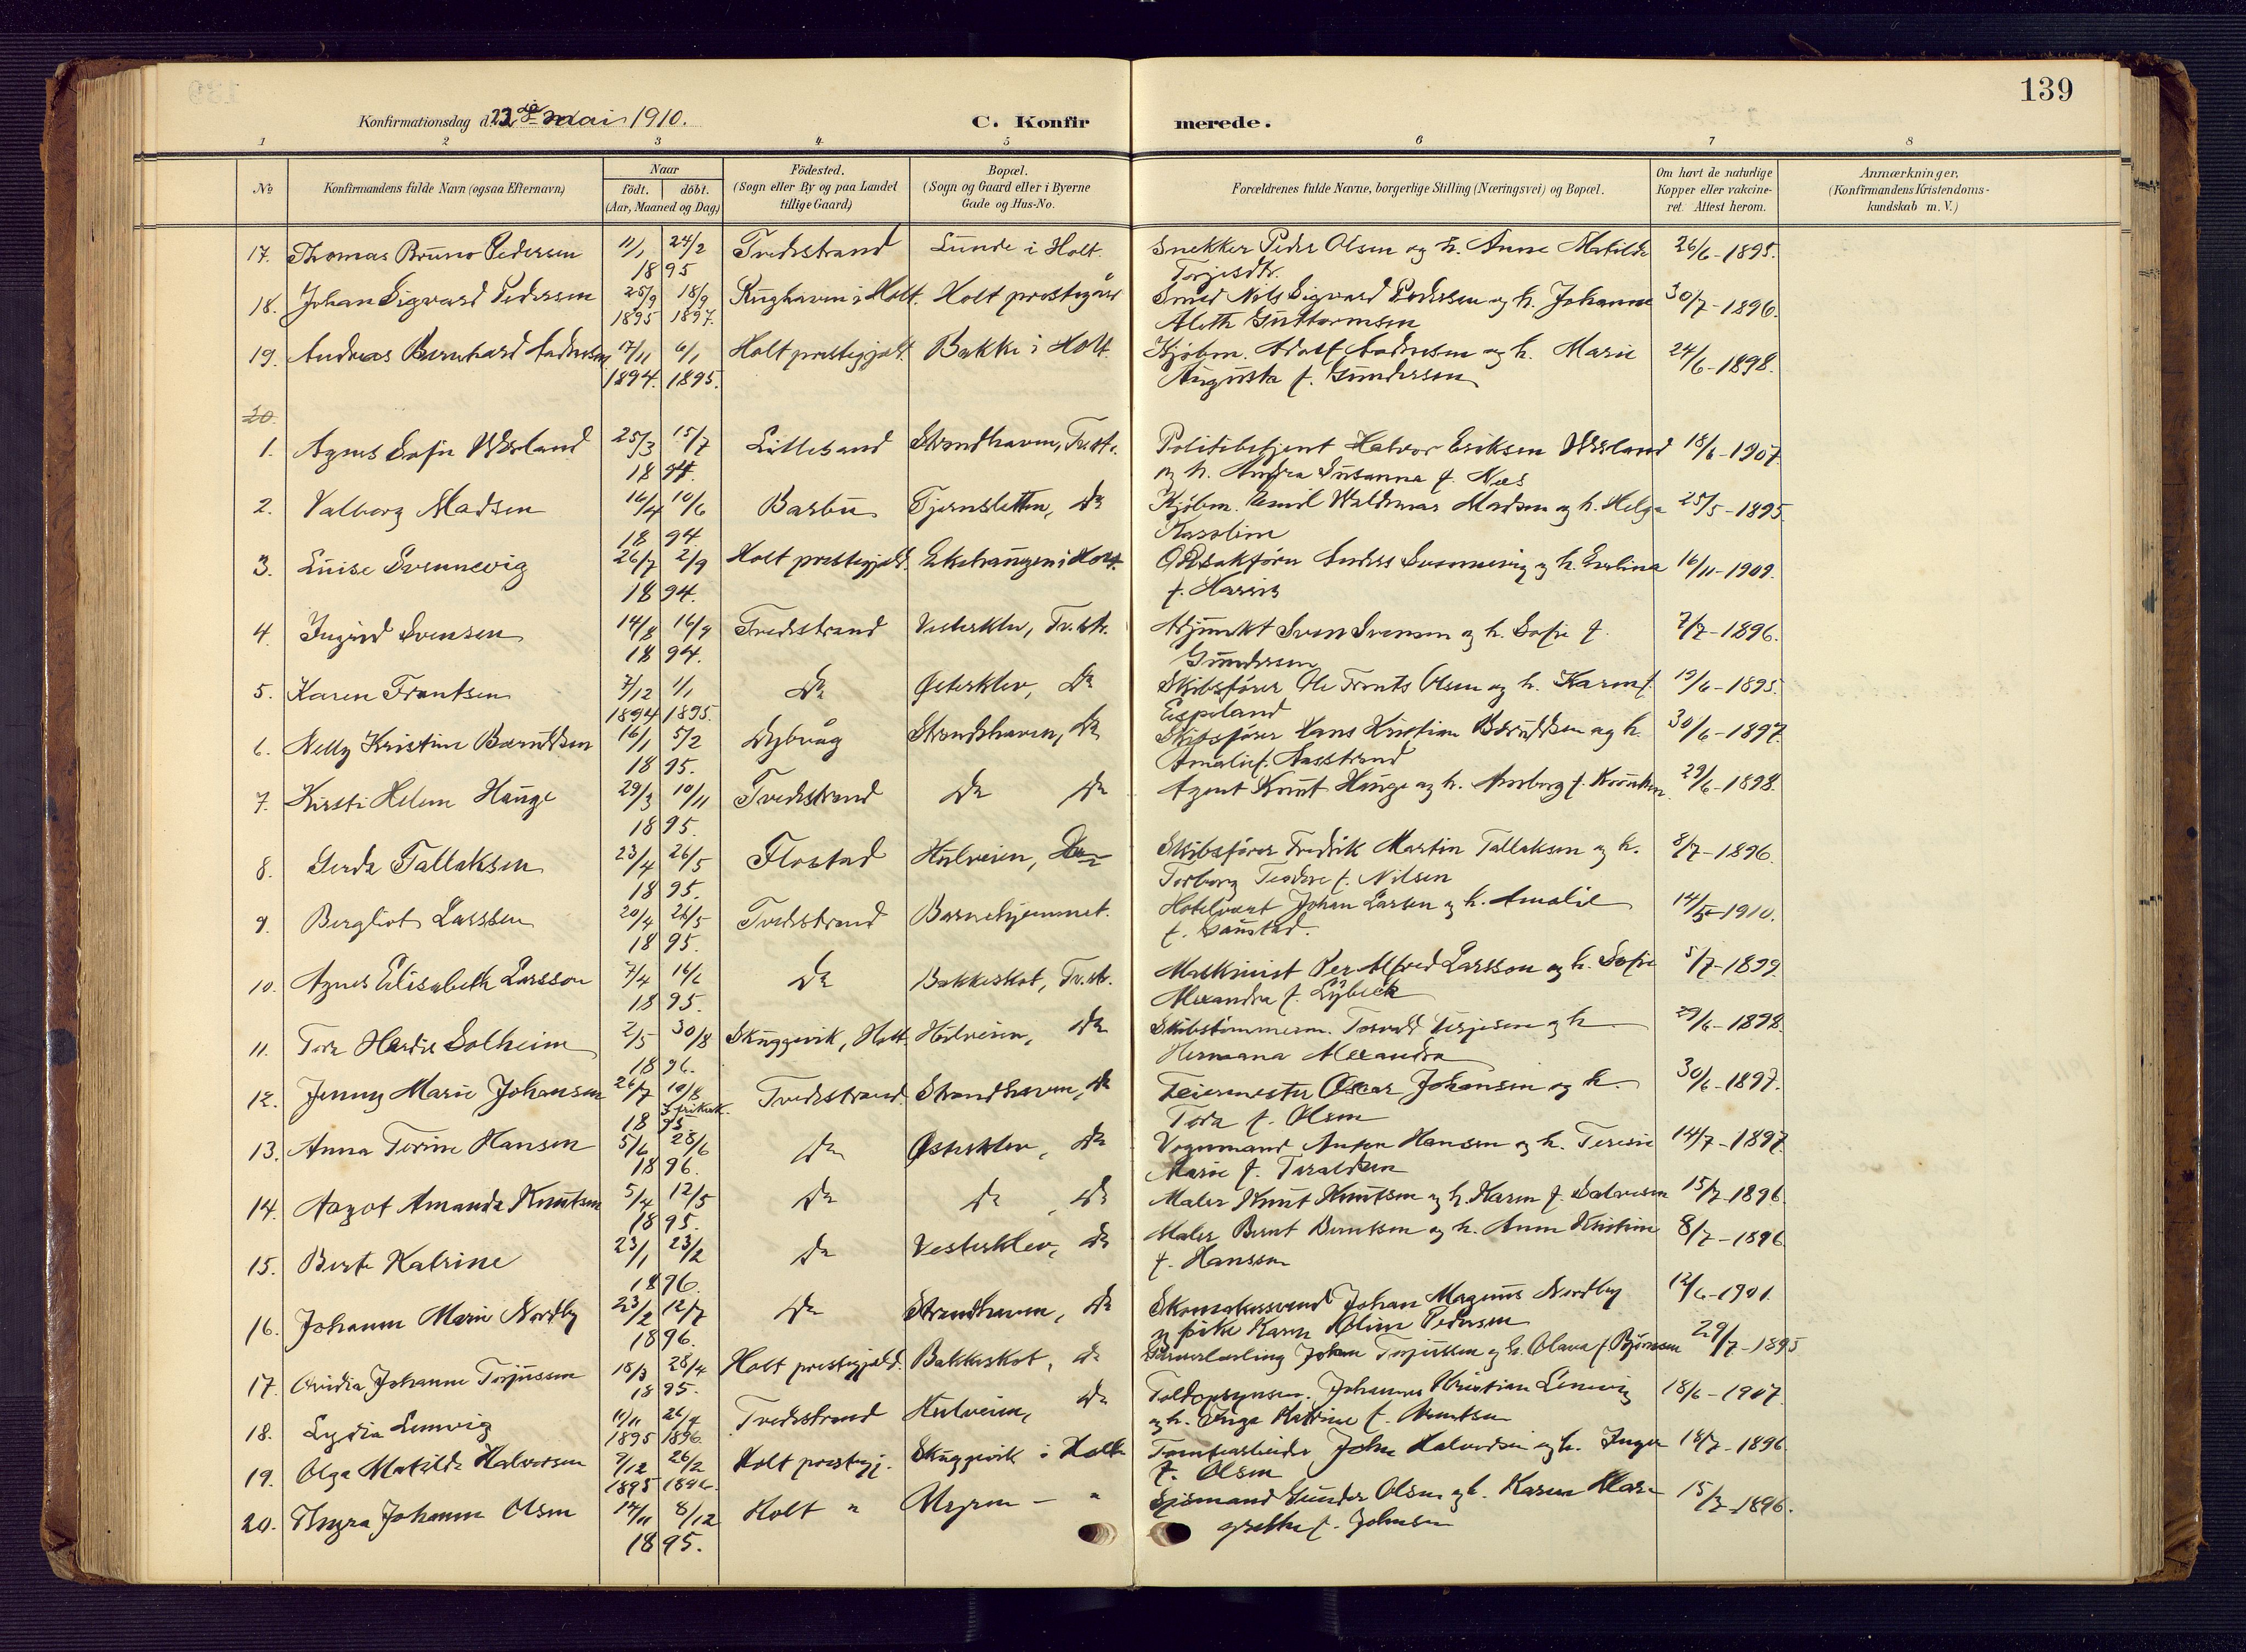 139
Konfirmationsdag d. 22de mai 1910.
C. Konfirmerede.
1 2 3 4 5 6 7 8
No
Konfirmandens fulde Navn (ogsaa Efternavn)
Naar
födt. döbt.
(Aar, Maaned og Dag)
Födested.
(Sogn eller By og paa Landet
tillige Gaard)
Bopæl.
(Sogn og Gaard eller i Byerne
Gade og Hus-No.
Forældrenes fulde Navne, borgerlige Stilling (Næringsvei) og Bopæl.
Om havt de naturlige
Kopper eller vakcine-
ret. Attest herom.
Anmærkninger,
(Konfirmandens Kristendoms-
kundskab m. V.)
17. Thomas Bruno Pedersen 11/1 24/2 Tvedestrand Lunde i Holt. Snekker Peder Olsen og h. Anne Matilde 26/6-1895.
1895 Torjesdtr.
18. Johan Sigvard Pedersen 25/9 18/9 Holt. Holt prestegård Smed Nils Sigvard Pedersen og h. Johanne 30/7-1896.
1895 1897. Aleth Guttormsen
19. Andreas Bernhard Andresen 17/11 6/1 Holt prestegjæld. Bakke i Holt. Kjøbm. Adolf Andresen og h. Marie 24/6-1898.
1894. 1895. Augusta f. Gundersen
20.
1. Agnes Sofie 25/3 15/7 Lillesand Strandhaven, Tv.str. Politibetjent Halvor Eriksen 18/6-1907.
1894. og h. Susanna f. Næs
2. Valborg Madsen 16/4 10/6 Barbu Tjernsletten, do Kjøbm. Emil Waldemar Madsen og h. Helga 25/5-1895.
1894 Karoline
3. Luise Svennevig 26/7 2/9 Holt prestegjæld. i Holt. O.R.sakfører Anders Svennevig og h. 16/11-1909.
1894. f. Harris
4. Ingrid Svensen 14/8 16/9 Tvedestrand Vesterklev, Tv.str. Adjunkt Sven Svensen og h. Sofie f. 7/7-1896.
1894. Gundersen
5. Karen Frantsen 7/12 1/1 do Østerklev, do Skibsfører Ole Frants Olsen og h. Karen f. 19/6-1895.
1894 1895. Espeland
6. Nelly Kristine Berntsen 16/1 5/2 Dybvåg Strandhaven, do Skibsfører Hans Kristian og h. 30/6-1897.
1895. Amalie f. Aasstrand
7. Kirsti Helene Hauge 29/3 10/11 Tvedestrand do do Agent Knut Hauge og h. f. 29/6-1898.
1895.
8. Gerda Tallaksen 23/4 26/5 Flostad Hulveien, do Skibsfører Fredrik Martin Tallaksen og h. 8/7-1896.
1895. Torborg Teodore f. Nilsen
9. Bergliot Larssen 20/4 26/5 Tvedestrand Barnehjemmet. Hotelvært Johan Larsen og h. Amalie 14/5-1910.
1895. f.
10. Agnes Elisabeth Larsson 7/4 16/6 do Bakkeskot, Tv.str. Maskinist Per Alfred Larsson og h. Sofie 5/7-1899.
1895. Alexandra f. Lybeck
11. Tora Solheim 2/5 30/8 Skuggevik, Holt. Hulveien, do Skibstømmerm. Torvald Terjesen og h. 29/6-1898.
1896. Hermana Alexandra
12. Jenny Marie Johansen 26/7 10/8 Tvedestrand. Strandhaven, do Feiermester Oscar Johansen og h. 30/6-1897.
i frikirk.
1895. Tora f. Olsen
13. Anna Terine Hansen 5/6 28/6 do Østerklev, do Vognmand Anton Hansen og h. Teresie 14/7-1897.
1896. Marie f. Taraldsen
14. Aagot Amanda Knutsen 5/4 12/5 do do, do Maler Knut Knutsen og h. Karen f. Salvesen 15/7-1896.
1895.
15. Berte Katrine 23/1 23/2 do Vesterklev, do Maler Bernt Berntsen og h. Anne Kristine 8/7-1896.
1896. f. Hanssen
16. Johanne Marie Nordby 23/2 12/7 do Strandhaven, do Skomakersvend Johan Magnus Nordby 12/6-1901.
1896. og frøken Karen Oline Pedersen
17. Ovidia Johanne Torjussen 18/3 28/4 Holt prestegjæld. Bakkeskot, do Johan Torjussen og h. Olava f. Bjørnsen 29/7-1895
1895.
18. Lydia Lemvig 11/11 26/4 Tvedestrand Hulveien, do Toldopsynsm. Johannes Kristian Lemvig 18/6-1907.
1895 1896. og h. Inga Katrine f. Arentsen
19. Olga Matilde Halvorsen 9/12 26/2 Holt prestegj. Skuggevik i Holt Tomtearbeider John Halvorsen og h. Inger 18/7-1896
1895 1896. f. Olsen
20. Thyra Johanne Olsen 14/11 8/12 Holt " - " Sjømand Gunder Olsen og h. Karen Mar- 15/7-1896.
1895. grethe f. Johnsen